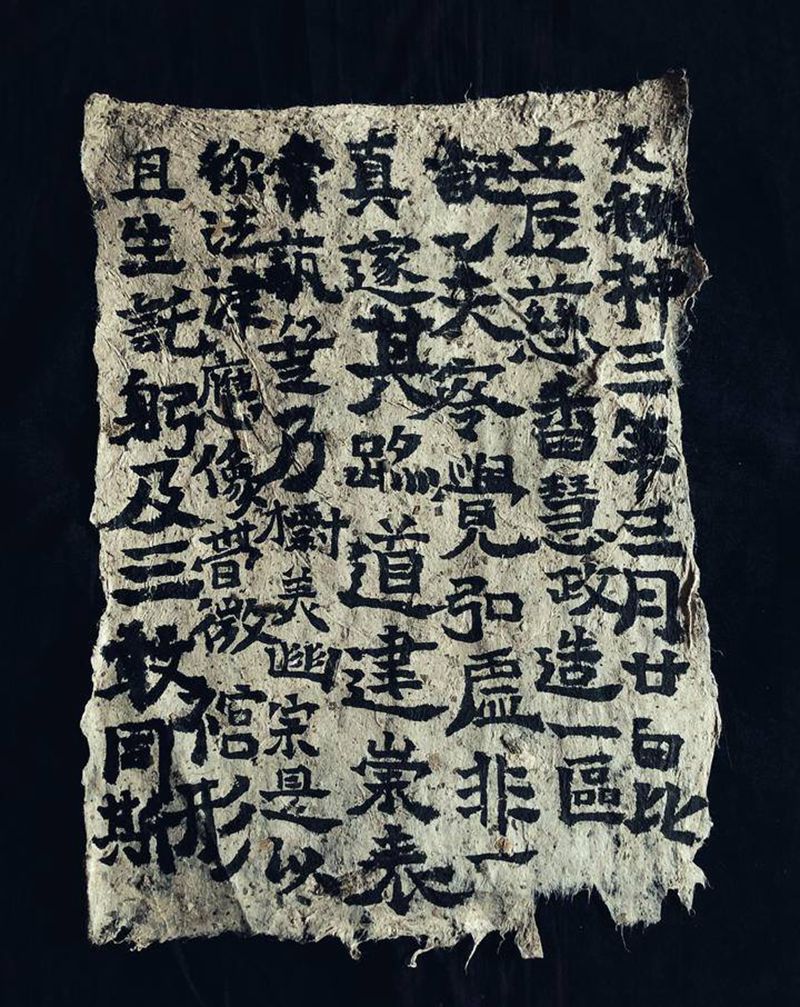 大神三年三月廿日比
丘尼慈香慧政造一區
記夫零覺弘虛非一
真邃其跡道建崇表
常乃樹美幽宗是以
法津應像營微形
且生託躬及三敬同斯